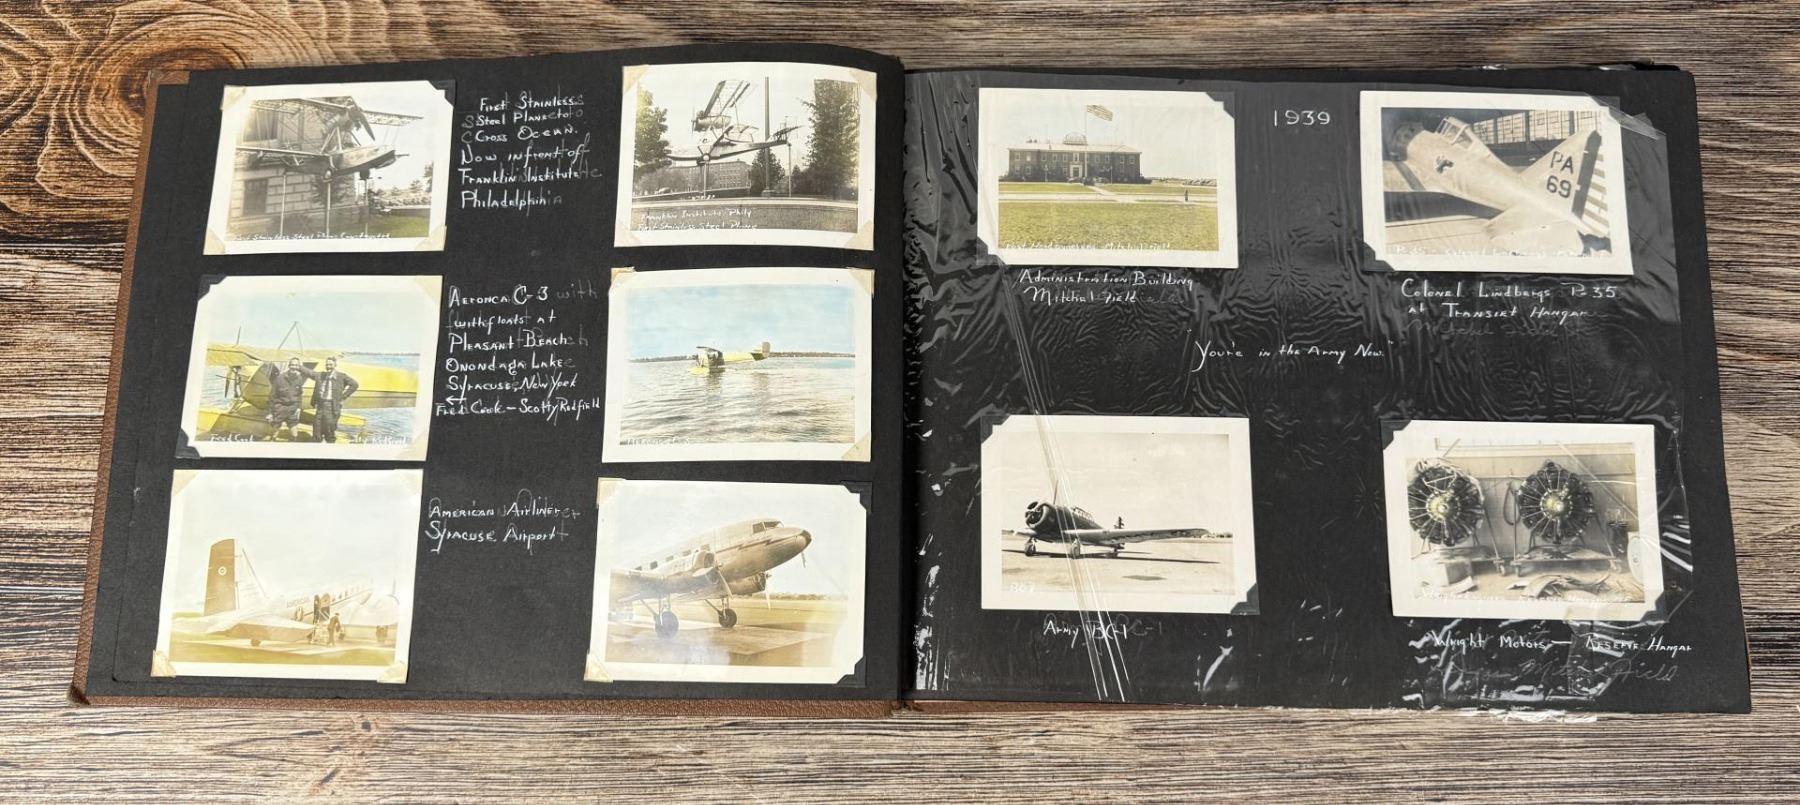 First Stainless
Steel Plane to
Cross Ocean.
Now in front of
Franklin Institute
Philadelphia
Franklin Institute "Phily"
First Stainless Steel Plane
Aeronca C-3
with floats at
Pleasant Beach
Onondaga Lake
Syracuse, New York
Fred Cook - Scotty Redfield
Fred Cook
American Airliner
Syracuse Airport
1939
Administration Building
Mitchel Field
PA
69
Colonel Lindbergs P-35
at Transiet Hangar
Mitchel Field
"You're in the Army Now."
BC-1
Army BC-1
Wright Motors - Reserve Hangar
Mitchel Field